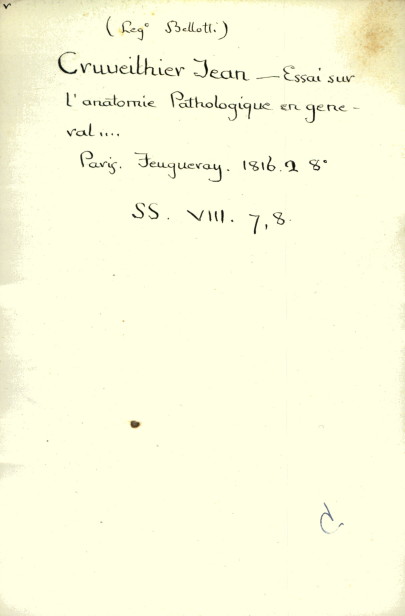 (Legº Bellotti)
Cruveilhier Jean — Essai sur
l'anatomie Pathologique en gene-
ral....
Paris. Feugueray. 1816. 2 8°
SS. VIII. 7, 8.
C.